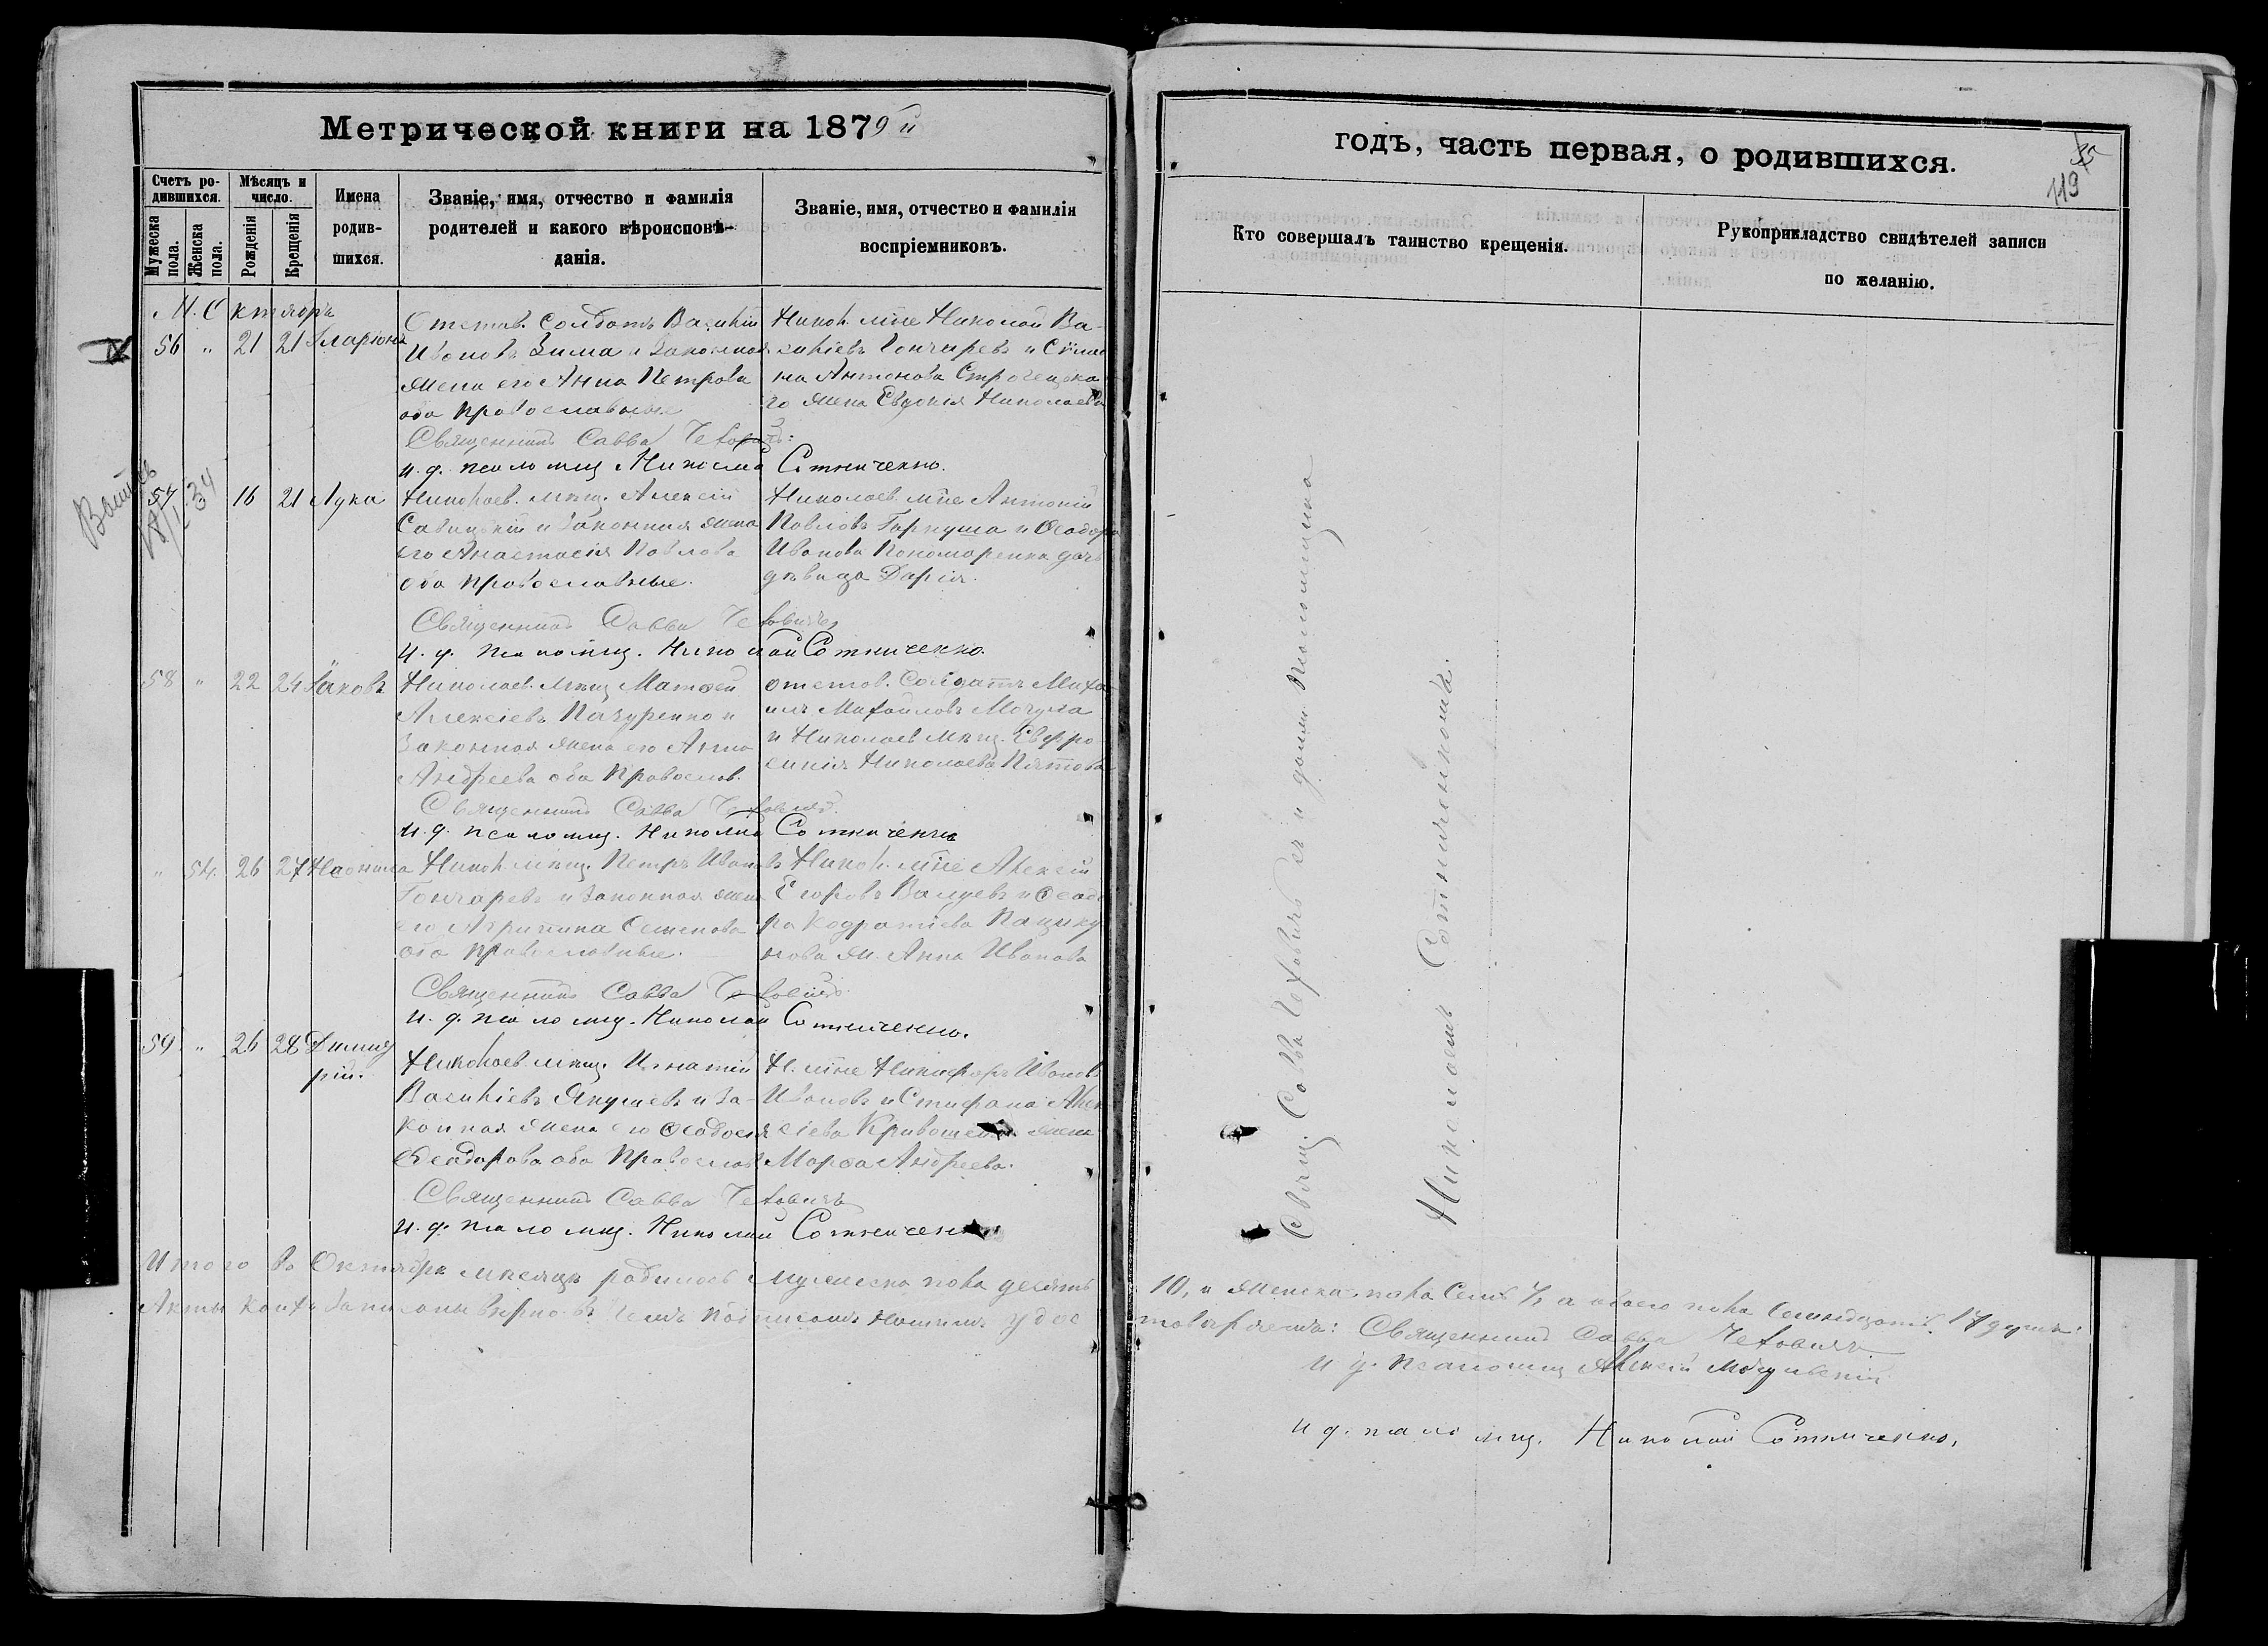 Метрической книги на 1879 й
Счетъ ро-
дившихся.
Мужеска пола.
Женска пола.
Мѣсяцъ и
число.
Рожденія
Крещенія
Имена
родив-
шихся.
Званіе, имя, отчество и фамилія
родителей и какого вѣроисповѣ-
данія.
Званіе, имя, отчество и фамилія
воспріемниковъ.
М. Октябрь
56 " 21 21 Иларіонъ
Отстав. Солдатъ Василій
Ивановъ Зима и Законная
жена его Анна Петрова
оба православные
Никол. мѣщ. Николай Ва-
силіевъ Гончаревъ и
Антонова
го жена Евдокія Николаева
Священникъ Савва Чеховичъ
и. д. псаломщ. Николай Сотниченко.
57 34 16 21 Лука
Николаев. мѣщ. Алексій
Савицкій и Законная жена
его Анастасія Павлова
оба православные.
Николаев. мѣщ. Антоній
Павловъ Гаркуша и Ѳеодора
Иванова Пономаренка дочь
дѣвица Дарія.
Священникъ Савва Чеховичъ
и. д. псаломщ. Николай Сотниченко.
58 " 22 24 Іаковъ
Николаев. мѣщ. Матѳей
Алексіевъ и
Законная жена его Анна
Андреева оба Православ.
отстав. Солдатъ Миха-
илъ Михайловъ Мачула
и Николаев мѣщ. Евфро-
синія Николаева
Священникъ Савва Чеховичъ
и. д. псаломщ. Николай Сотниченко
" 54. 26 27 Неонила
Никол. мѣщ. Петръ Ивановъ
Гончаревъ и Законная жена
его Агрипина Семенова
оба православные.
Никол. мѣщ. Алексій
Егоровъ Валуевъ и Ѳеодо-
ра Кодратіева
нова ж. Анна Иванова
Священникъ Савва Чеховичъ
и. д. псаломщ. Николай Сотниченко.
59 " 26 28 Димит
рій.
Николаев мѣщ. Игнатій
Василіевъ Якушевъ и За-
конная жена его Ѳеодосія
Ѳеодорова оба Православ
Н. мѣщ. Никифоръ Ивановъ
Ивановъ и Стифана Алек
сіева жена
Марѳа Андреева.
Священникъ Савва Чеховичъ
и. д. псаломщ. Николай Сотниченко
Итого въ Октябрѣ мѣсяцѣ родилось мужеска пола десять
Акты коихъ записаны вѣрно въ чемъ подписомъ нашимъ удос
годъ, часть первая, о родившихся.
35
119
Кто совершалъ таинство крещенія.
Рукоприкладство свидѣтелей записи
по желанію.
Свящ. Савва Чеховичъ съ и должн. Псаломщика
Николаемъ Сотниченкомъ.
10, и женска пола Семь 7, а обоего пола Семнадцать 17 душъ.
товѣряемъ: Священникъ Савва Чеховичъ
и д. псаломщ Алексій
и д. псаломщ. Николай Сотниченко,